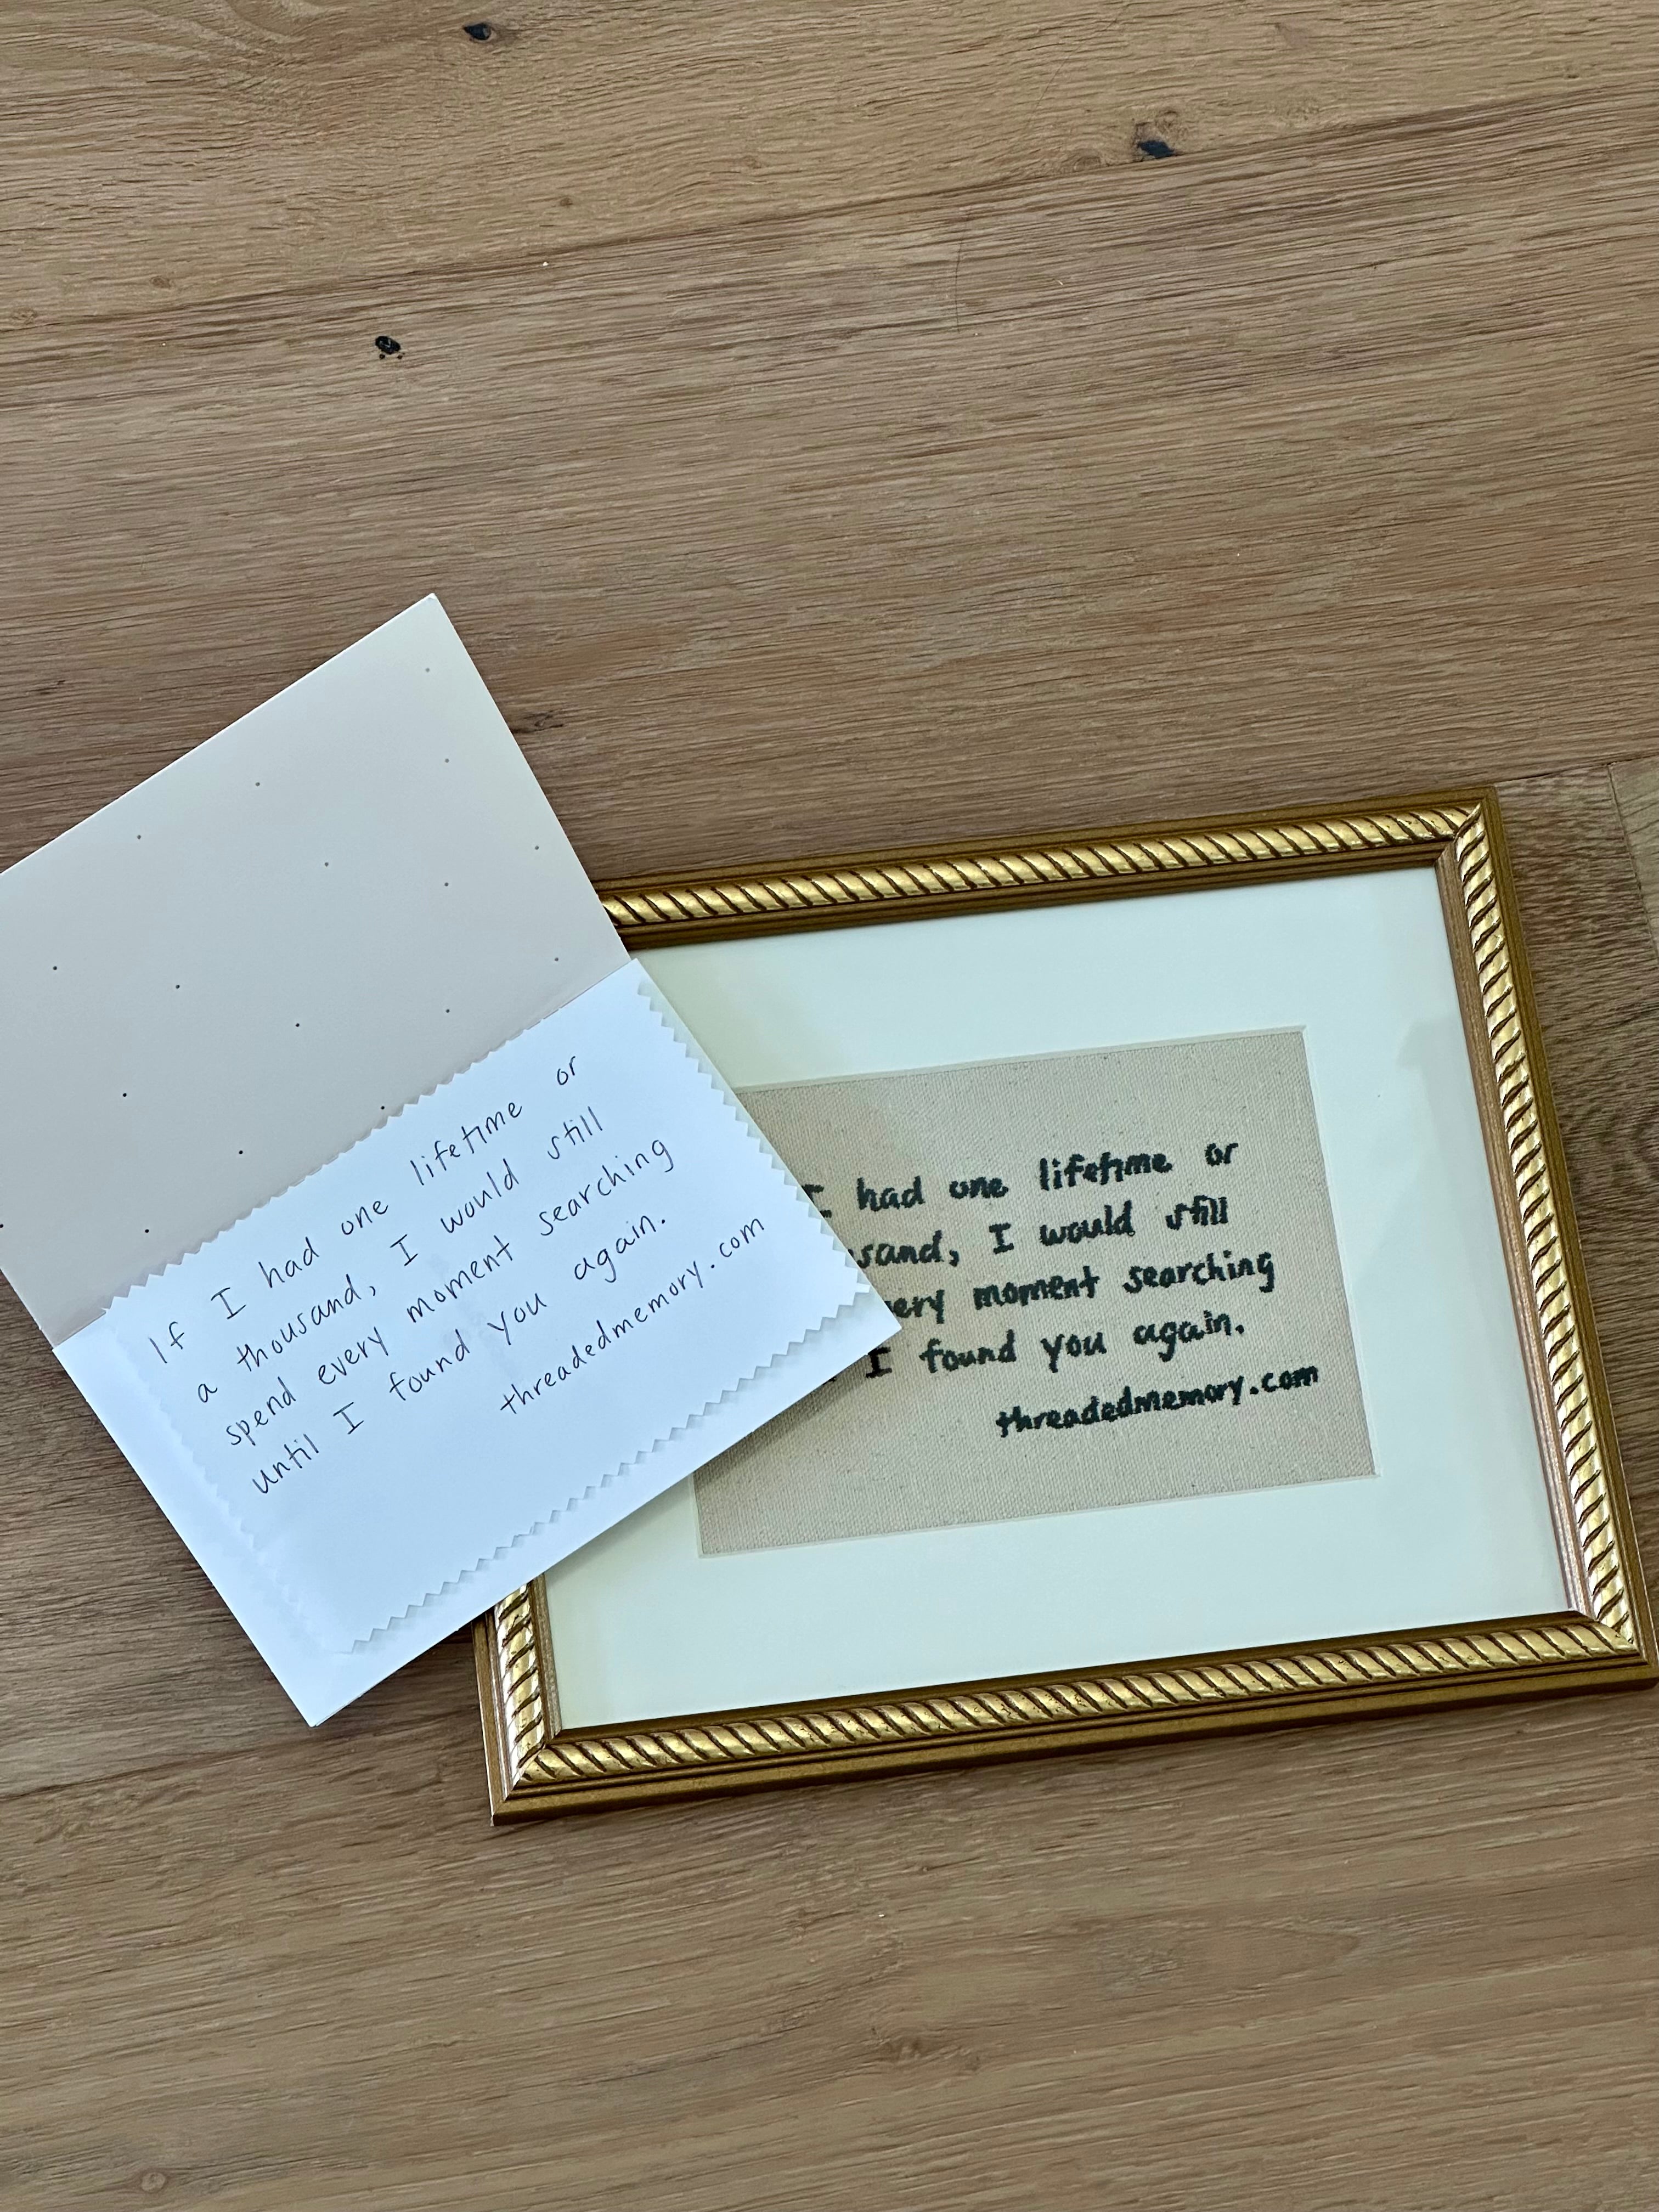 If I had one lifetime or
a thousand, I would still
spend every moment searching
until I found you again.
threadedmemory.com
I had one lifetime or
sand, I would still
ery moment searching
I found you again.
threadedmemory.com